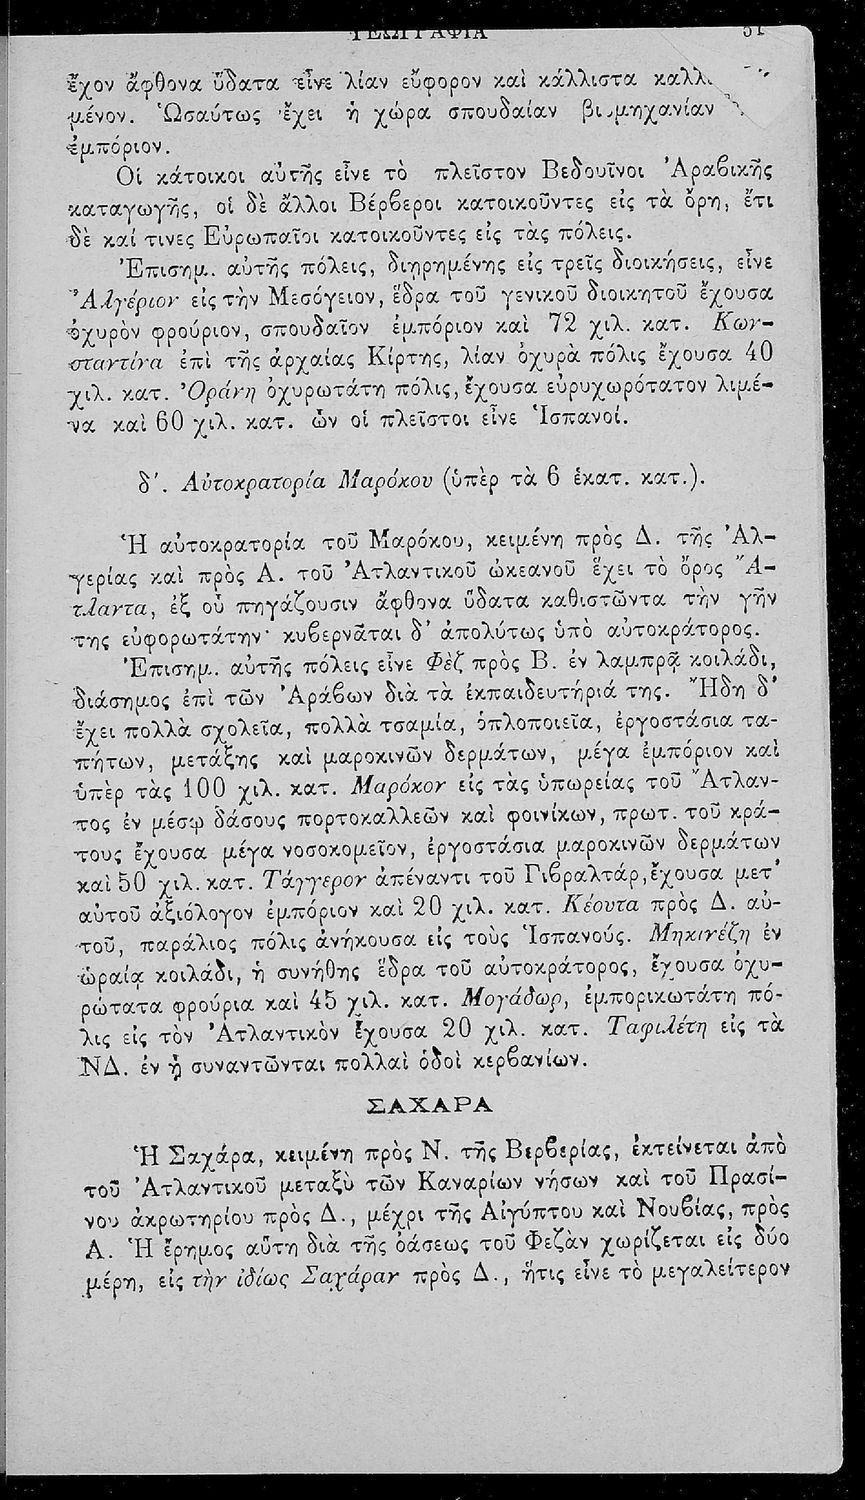 ΓΕΩΓΡΑΦΙΑ 51
ἔχον ἄφθονα ὕδατα εἶνε λίαν εὔφορον καὶ κάλλιστα
μένον. Ὡσαύτως ἔχει ἡ χώρα σπουδαίαν βιομηχανίαν
ἐμπόριον.
Οἱ κάτοικοι αὐτῆς εἶνε τὸ πλεῖστον Βεδουῖνοι Ἀραβικῆς
καταγωγῆς, οἱ δὲ ἄλλοι Βέρβεροι κατοικοῦντες εἰς τὰ ὄρη, ἔτι
δὲ καί τινες Εὐρωπαῖοι κατοικοῦντες εἰς τὰς πόλεις.
Ἐπισημ. αὐτῆς πόλεις, διῃρημένης εἰς τρεῖς διοικήσεις, εἶνε
Ἀλγέριον εἰς τὴν Μεσόγειον, ἕδρα τοῦ γενικοῦ διοικητοῦ ἔχουσα
ὀχυρὸν φρούριον, σπουδαῖον ἐμπόριον καὶ 72 χιλ. κατ. Κων-
σταντίνα ἐπὶ τῆς ἀρχαίας Κίρτης, λίαν ὀχυρὰ πόλις ἔχουσα 40
χιλ. κατ. Ὀράνη ὀχυρωτάτη πόλις, ἔχουσα εὐρυχωρότατον λιμέ-
να καὶ 60 χιλ. κατ. ὧν οἱ πλεῖστοι εἶνε Ἱσπανοί.
δ'. Αὐτοκρατορία Μαρόκου (ὑπὲρ τὰ 6 ἑκατ. κατ.).
Ἡ αὐτοκρατορία τοῦ Μαρόκου, κειμένη πρὸς Δ. τῆς Ἀλ-
γερίας καὶ πρὸς Α. τοῦ Ἀτλαντικοῦ ὠκεανοῦ ἔχει τὸ ὄρος Ἄ-
τλαντα, ἐξ οὗ πηγάζουσιν ἄφθονα ὕδατα καθιστῶντα τὴν γῆν
της εὐφορωτάτην· κυβερνᾶται δ' ἀπολύτως ὑπὸ αὐτοκράτορος.
Ἐπισημ. αὐτῆς πόλεις εἶνε Φὲζ πρὸς Β. ἐν λαμπρᾷ κοιλάδι,
διάσημος ἐπὶ τῶν Ἀράβων διὰ τὰ ἐκπαιδευτήριά της. Ἤδη δ'
ἔχει πολλὰ σχολεῖα, πολλὰ τσαμία, ὁπλοποιεῖα, ἐργοστάσια τα-
πήτων, μετάξης καὶ μαροκινῶν δερμάτων, μέγα ἐμπόριον καὶ
ὑπὲρ τὰς 100 χιλ. κατ. Μαρόκον εἰς τὰς ὑπωρείας τοῦ Ἄτλαν-
τος ἐν μέσῳ δάσους πορτοκαλλεῶν καὶ φοινίκων, πρωτ. τοῦ κρά-
τους ἔχουσα μέγα νοσοκομεῖον, ἐργοστάσια μαροκινῶν δερμάτων
καὶ 50 χιλ. κατ. Τάγγερον ἀπέναντι τοῦ Γιβραλτάρ, ἔχουσα μετ'
αὐτοῦ ἀξιόλογον ἐμπόριον καὶ 20 χιλ. κατ. Κέουτα πρὸς Δ. αὐ-
τοῦ, παράλιος πόλις ἀνήκουσα εἰς τοὺς Ἱσπανούς. Μηκινέζη ἐν
ὡραίᾳ κοιλάδι, ἡ συνήθης ἕδρα τοῦ αὐτοκράτορος, ἔχουσα ὀχυ-
ρώτατα φρούρια καὶ 45 χιλ. κατ. Μογάδωρ, ἐμπορικωτάτη πό-
λις εἰς τὸν Ἀτλαντικὸν ἔχουσα 20 χιλ. κατ. Ταφιλέτη εἰς τὰ
ΝΔ. ἐν ᾗ συναντῶνται πολλαὶ ὁδοὶ κερβανίων.
ΣΑΧΑΡΑ
Ἡ Σαχάρα, κειμένη πρὸς Ν. τῆς Βερβερίας, ἐκτείνεται ἀπὸ
τοῦ Ἀτλαντικοῦ μεταξὺ τῶν Καναρίων νήσων καὶ τοῦ Πρασί-
νου ἀκρωτηρίου πρὸς Δ., μέχρι τῆς Αἰγύπτου καὶ Νουβίας, πρὸς
Α. Ἡ ἔρημος αὕτη διὰ τῆς ὀάσεως τοῦ Φεζὰν χωρίζεται εἰς δύο
μέρη, εἰς τὴν ἰδίως Σαχάραν πρὸς Δ., ἥτις εἶνε τὸ μεγαλείτερον